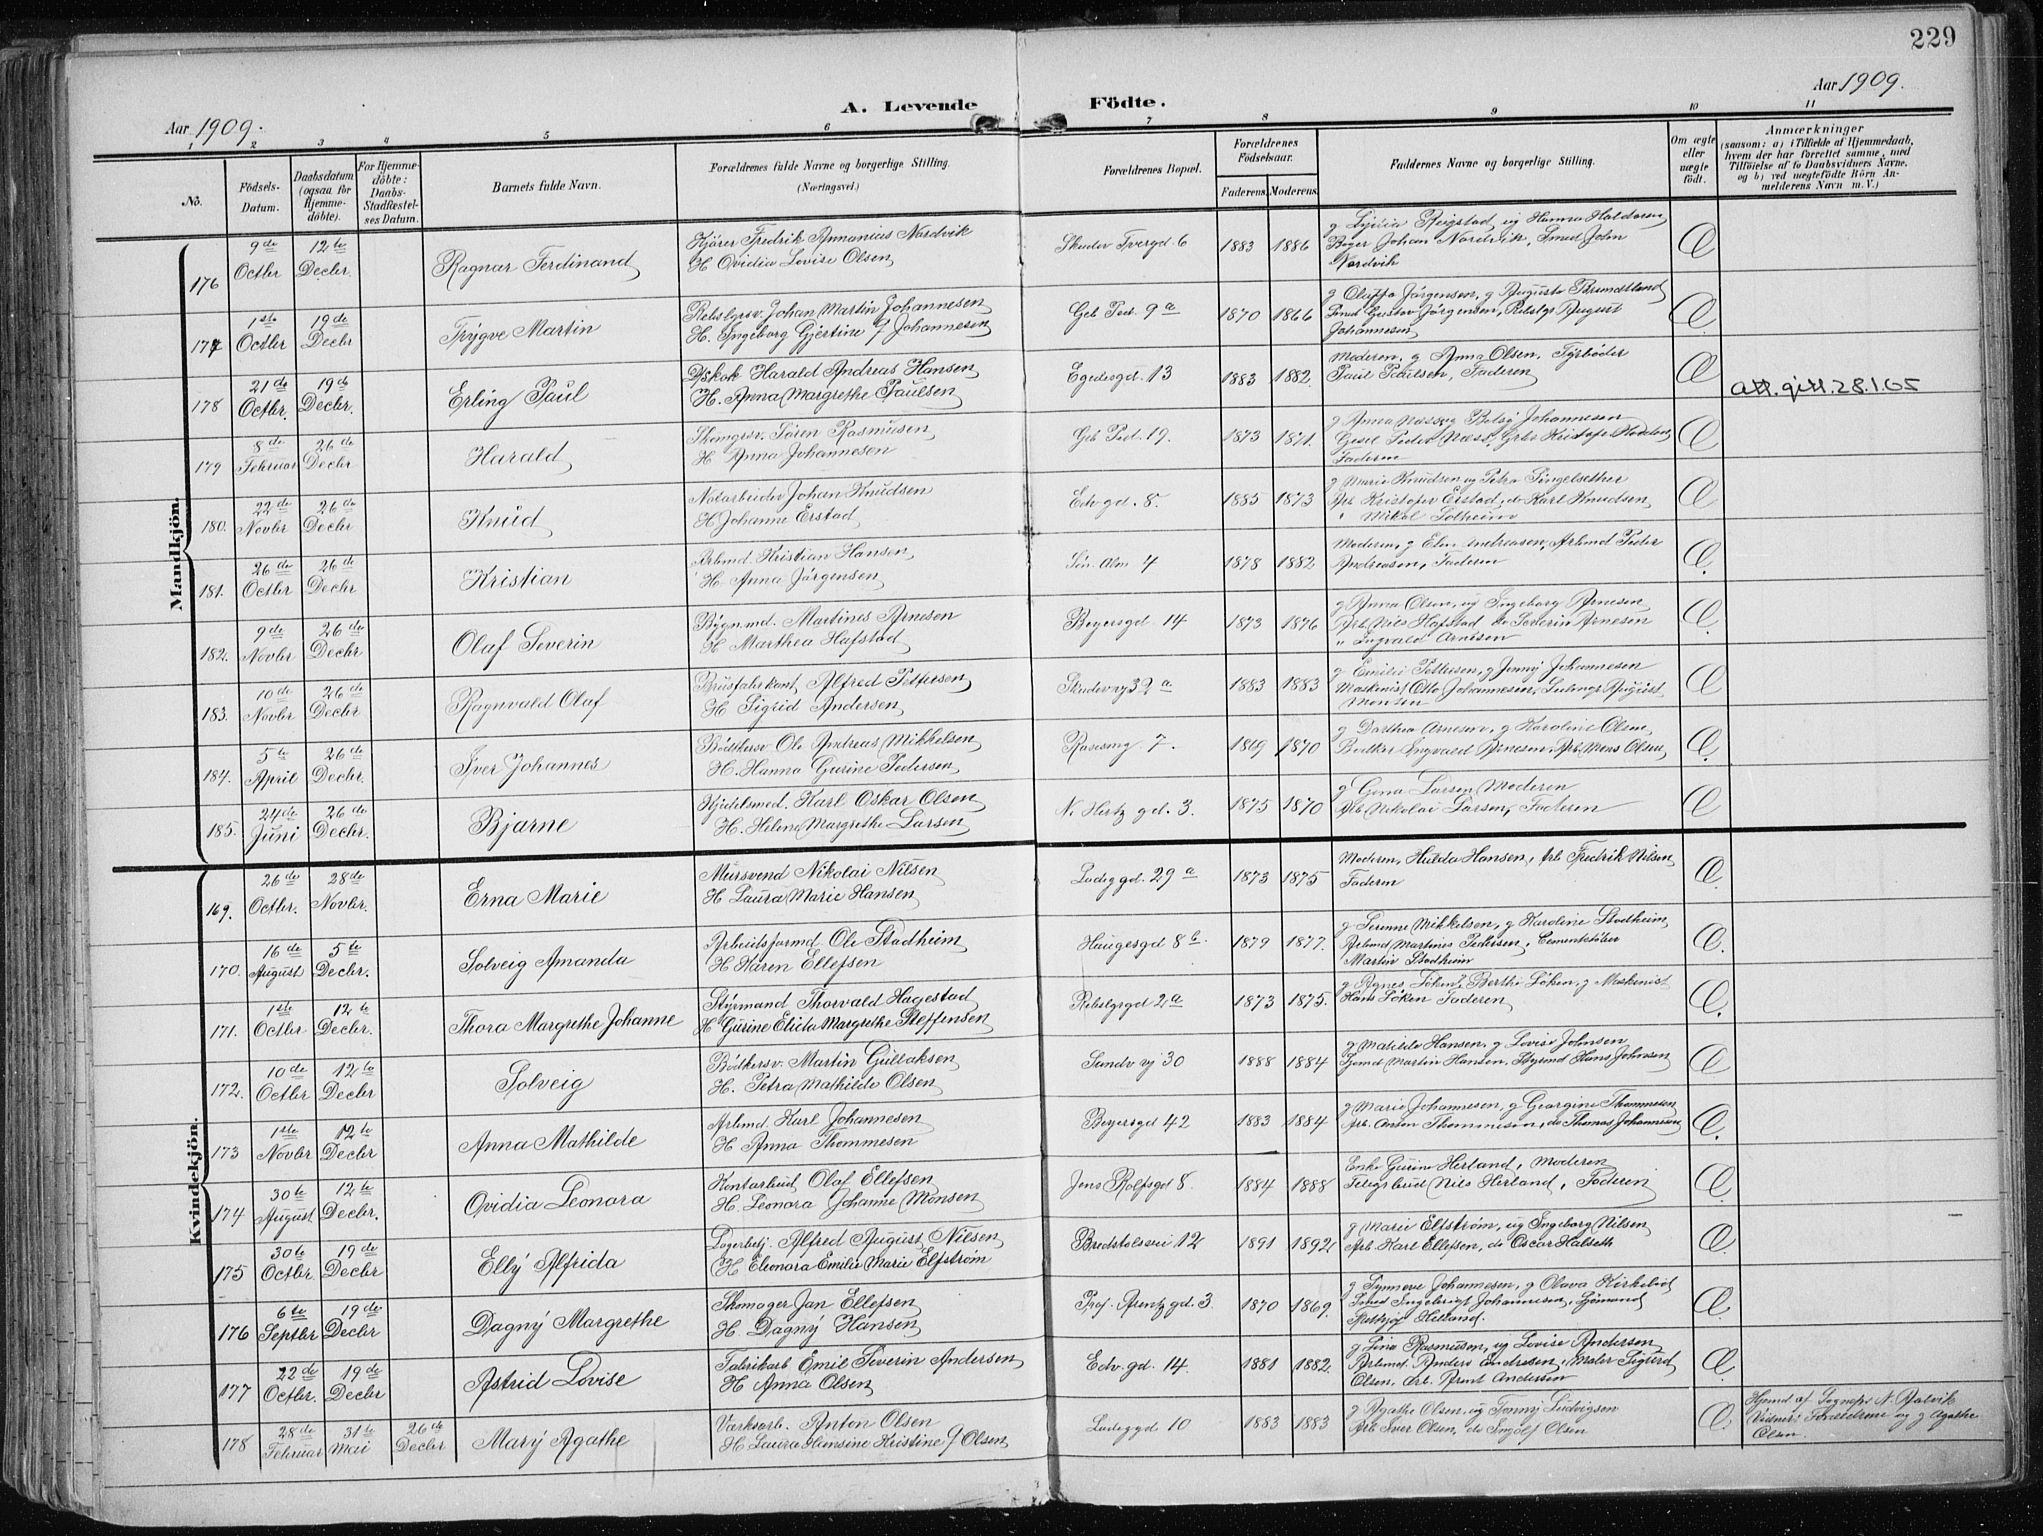 229
Aar 1909.
A. Levende Födte.
Aar 1909.
1 2 3 4 5 6 7 8 9 10 11
No.
Födsels-Datum.
Daabsdatum (ogsaa for Hjemmedöbte).
For Hjemmedöbte: Daabs-Stadfæstelses Datum.
Barnets fulde Navn.
Forældrenes fulde Navne og borgerlige Stilling.
(Næringsvei.)
Forældrenes Bopæl.
Forældrenes Födselsaar.
Faderens. Moderens.
Faddernes Navne og borgerlige Stilling.
Om ægte eller uægte födt.
Anmærkninger
(saasom: a) i Tilfælde af Hjemmedaab, hvem der har forrettet samme, med Tilföielse af to Daabsvidners Navne, og b) ved uægtefödte Börn Anmelderens Navn m. V.)
Mandkjön.
176 9de Octbr 12te Decbr. Ragnar Ferdinand Kjörer Fredrik Annanius Nordvik Skuder Tvergd. 6 1883 1886
H Ovidia Lovise Olsen
Bager Johan Nordvik, Smed John
Nordvik
177 1ste Octbr 19de Decbr Trygve Martin Rebslgrsv. Johan Martin Johannesen Geb Ped. 9a 1870 1866 g Oluffa Jörgensen, g Augusta Brundtland
H. Ingeborg Gjertine J Johannesen Smed Gustav Jörgensen, Rebslgr August
Johannesen
178 21de Octbr. 19de Decbr. Erling Paul Dskok Harald Andreas Hansen Egedesgd. 13 1883 1882 Moderen, g Anna Olsen, Fyrböder
H. Anna Margrethe Paulsen Paul Paulsen, Faderen att. gitt. 28.1.65
179 8de Februar 26de Decbr Harald Skomgrsv. Sören Rasmusen Geb Ped. 19. 1873 1871.
H Anna Johannesen
Faderen
180. 22de Novbr 26de Decbr Knud Notarbeider Johan Knudsen Edv gd. 8. 1885 1873 g Marie Knudsen og Petra Singelsether
H Johanne Erstad Arb Kristofer Erstad, do Karl Knudsen,
" Mikal Solheim
181. 26de Octbr 26de Decbr Kristian Arbmd. Kristian Hansen Sön. Alm 4 1878 1882 Moderen, g Elen Andreasen, Arbmd Peder
H. Anna Jörgensen Andreasen, Faderen
182. 9de Novbr 26de Decbr Olaf Severin Bygn.md. Martines Arnesen Beyersgd. 14 1873 1876 g Anna Olsen, og Ingeborg Arnesen
H Marthea Hafstad Arb Nils Hafstad do Severin Arnesen
" Ingvald Arnesen
183. 10de Novbr 26de Decbr Ragnvald Olaf Brusfabrkont. Alfred Pettersen Skudevy 32a 1883 1883 g Emilie Pettersen, g Jenny Johannesen
H Sigrid Andersen Maskinist Otto Johannesen, August
Monsen
184. 5te April 26de Decbr. Iver Johannes Bödkersv Ole Andreas Mikkelsen Rosesmg 7. 1869 1870 g Dorthea Arnesen, g Karoline Olsen
H. Hanna Gurine Pedersen Bödker Ingvald Arnesen, Arb. Mons Olsen
185. 24de Juni 26de Decbr. Bjarne Kjedelsmed. Karl Oskar Olsen N. Hertz gd. 3. 1875 1870 g Gina Larsen, Moderen
H. Helene Margrethe Larsen Arb Nikolai Larsen, Faderen
Kvindekjön.
169. 26de Octbr. 28de Novbr. Erna Marie Mursvend Nikolai Nilsen Ladeggd. 29a 1873 1875 Moderen, Hulda Hansen, Arb Fredrik Nilsen
H Laura Marie Hansen Faderen
170. 16de August 5te Decbr. Solveig Amanda Arbeidsformd Ole Stadheim Haugesgd 8b. 1879 1877. g Serenne Mikkelsen, g Karoline Stadheim
H Karen Ellefsen Arbmd Martines Pedersen, Cementstöber
Martin Stadheim
171. 1ste Octbr 12te Decbr. Thora Margrethe Johanne Styrmand Thorvald Hagestad Rebslgrgd 2a 1873 1875. g Agnes Löken, g Berthe Löken, g Maskinist
H Gurine Elida Margrethe Steffensen Hans Löken Faderen
172. 10de Octbr 12te Decbr Solveig Bödkersv. Martin Gullaksen Sandv vj 30 1888 1884 g Matilde Hansen, g Lovise Johnsen
H. Petra Mathilde Olsen Sjömd Martin Hansen, Styrmd Hans Johnsen
173 1ste Novbr 12te Decbr Anna Mathilde Arbmd Karl Johannesen Beyersgd 42 1883 1884 g Marie Johannesen, g Georgine Thommesen
H Anna Thommesen Arb. Anton Thommesen, do Thomas Johannesen
174 30te August 12te Decbr. Ovidia Leonora Kontorbud Olaf Ellefsen Jens Rolfsgd 8. 1884 1888 Enke Gurine Herland, Moderen
H. Leonora Johanne Monsen Telegrbud Nils Herland, Faderen
175 30te Octbr. 19de Decbr Elly Alfrida Lagerbetj. Alfred August Nilsen Bredstölsvei 12 1891 1892 g Marie Elfström, og Ingeborg Nilsen
H Eleonora Emilie Marie Elfström Arb. Karl Ellefsen, do Oscar Halseth
176 6te Septbr 19de Decbr Dagny Margrethe Skomager Jan Ellefsen Prof. Arentz gd. 3 1870 1869. g Synnöve Johannesen, g Olava Kirkelid
H. Dagny Hansen Ingebrigt Johannesen, Sjömand
Hetland.
177 22de Octbr. 19de Decbr Astrid Lovise Fabrikarb Emil Severin Andersen Edv. gd. 14 1881 1882 g Lina Rasmussen, og Lovise Andersen
H Anna Olsen Arbmd. Anders Andresen, Maler Sigurd
Olsen, Arb. Arent Andersen
178 28de Februar 31te Mai 26de Decbr Mary Agathe Værksarb. Anton Olsen Ladeggd 10 1883 1883 g Agathe Olsen, og Fanny Ludvigsen
H. Laura Hansine Kristine J Olsen Arb Iver Olsen, do Ingolf Olsen
Hjmd af Sognepr N. Astvik
Vidner: Forældrene og g Agathe
Olsen.